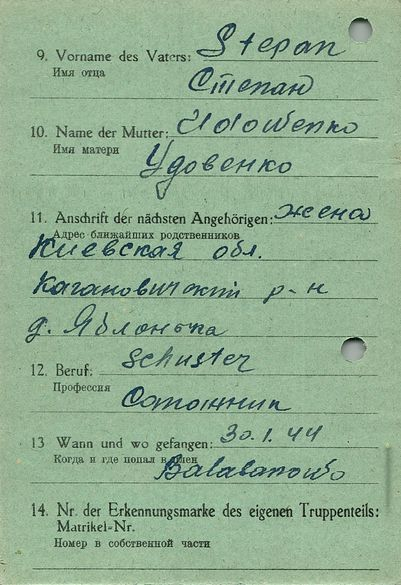 9. Vorname des Vaters: Stepan
Имя отца
Степан
10. Name der Mutter: Udowenko
Имя матери
Удовенко
11. Anschrift der nächsten Angehörigen: жена
Адрес ближайших родственников
Киевская обл.
Кагановичский р-н
д. Яблонька
12. Beruf: Schuster
Профессия
Сапожник
13 Wann und wo gefangen: 30.1.44
Когда и где попал в плен
Balabanowo
14. Nr. der Erkennungsmarke des eigenen Truppenteils:
Matrikel-Nr.
Номер в собственной части